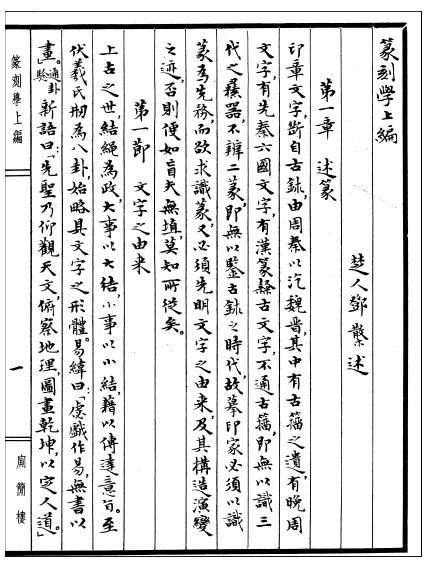 篆刻學上編
楚人鄧散木述
第一章 述篆
印章文字，斷自古鉨，由周秦以迄魏晋，其中有古籀之遺，有晚周
文字，有先秦六國文字，有漢篆繇古文字，不通古籀，即無以識三
代之彝器，不辨二篆，即無以鑒古鉨之時代，故摹印家必須以識
篆爲先務，而欲求識篆，又必須先明文字之由来，及其構造演變
之迹，否則便如盲夫無埴，莫知所從矣。
第一節 文字之由来
上古之世，結繩爲政，大事以大結，小事以小結，藉以傳達意旨。至
伏羲氏刱爲八卦，始略具文字之形體。易緯曰：「虙戲作易，無書以
畫。」通卦驗新語曰：「先聖乃仰觀天文，俯察地理，圖畫乾坤，以定人道。」
篆刻學上編
一
廁簡樓